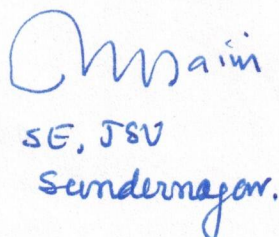 SE, JSV
Sundernagar.